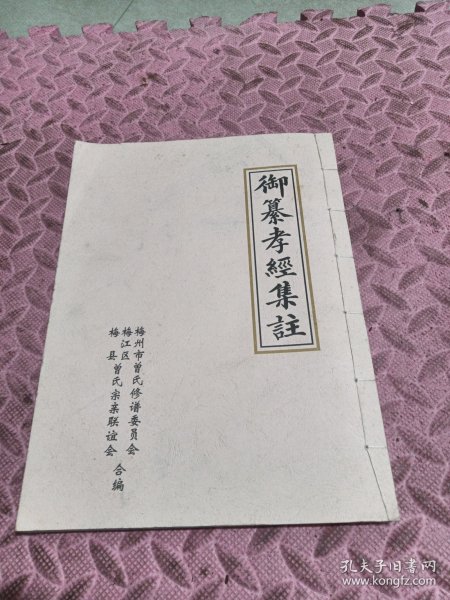 御纂孝經集註
梅州市曾氏修谱委员会
梅江区
梅县曾氏宗亲联谊会
合编
孔夫子旧书网
www.kongfz.com